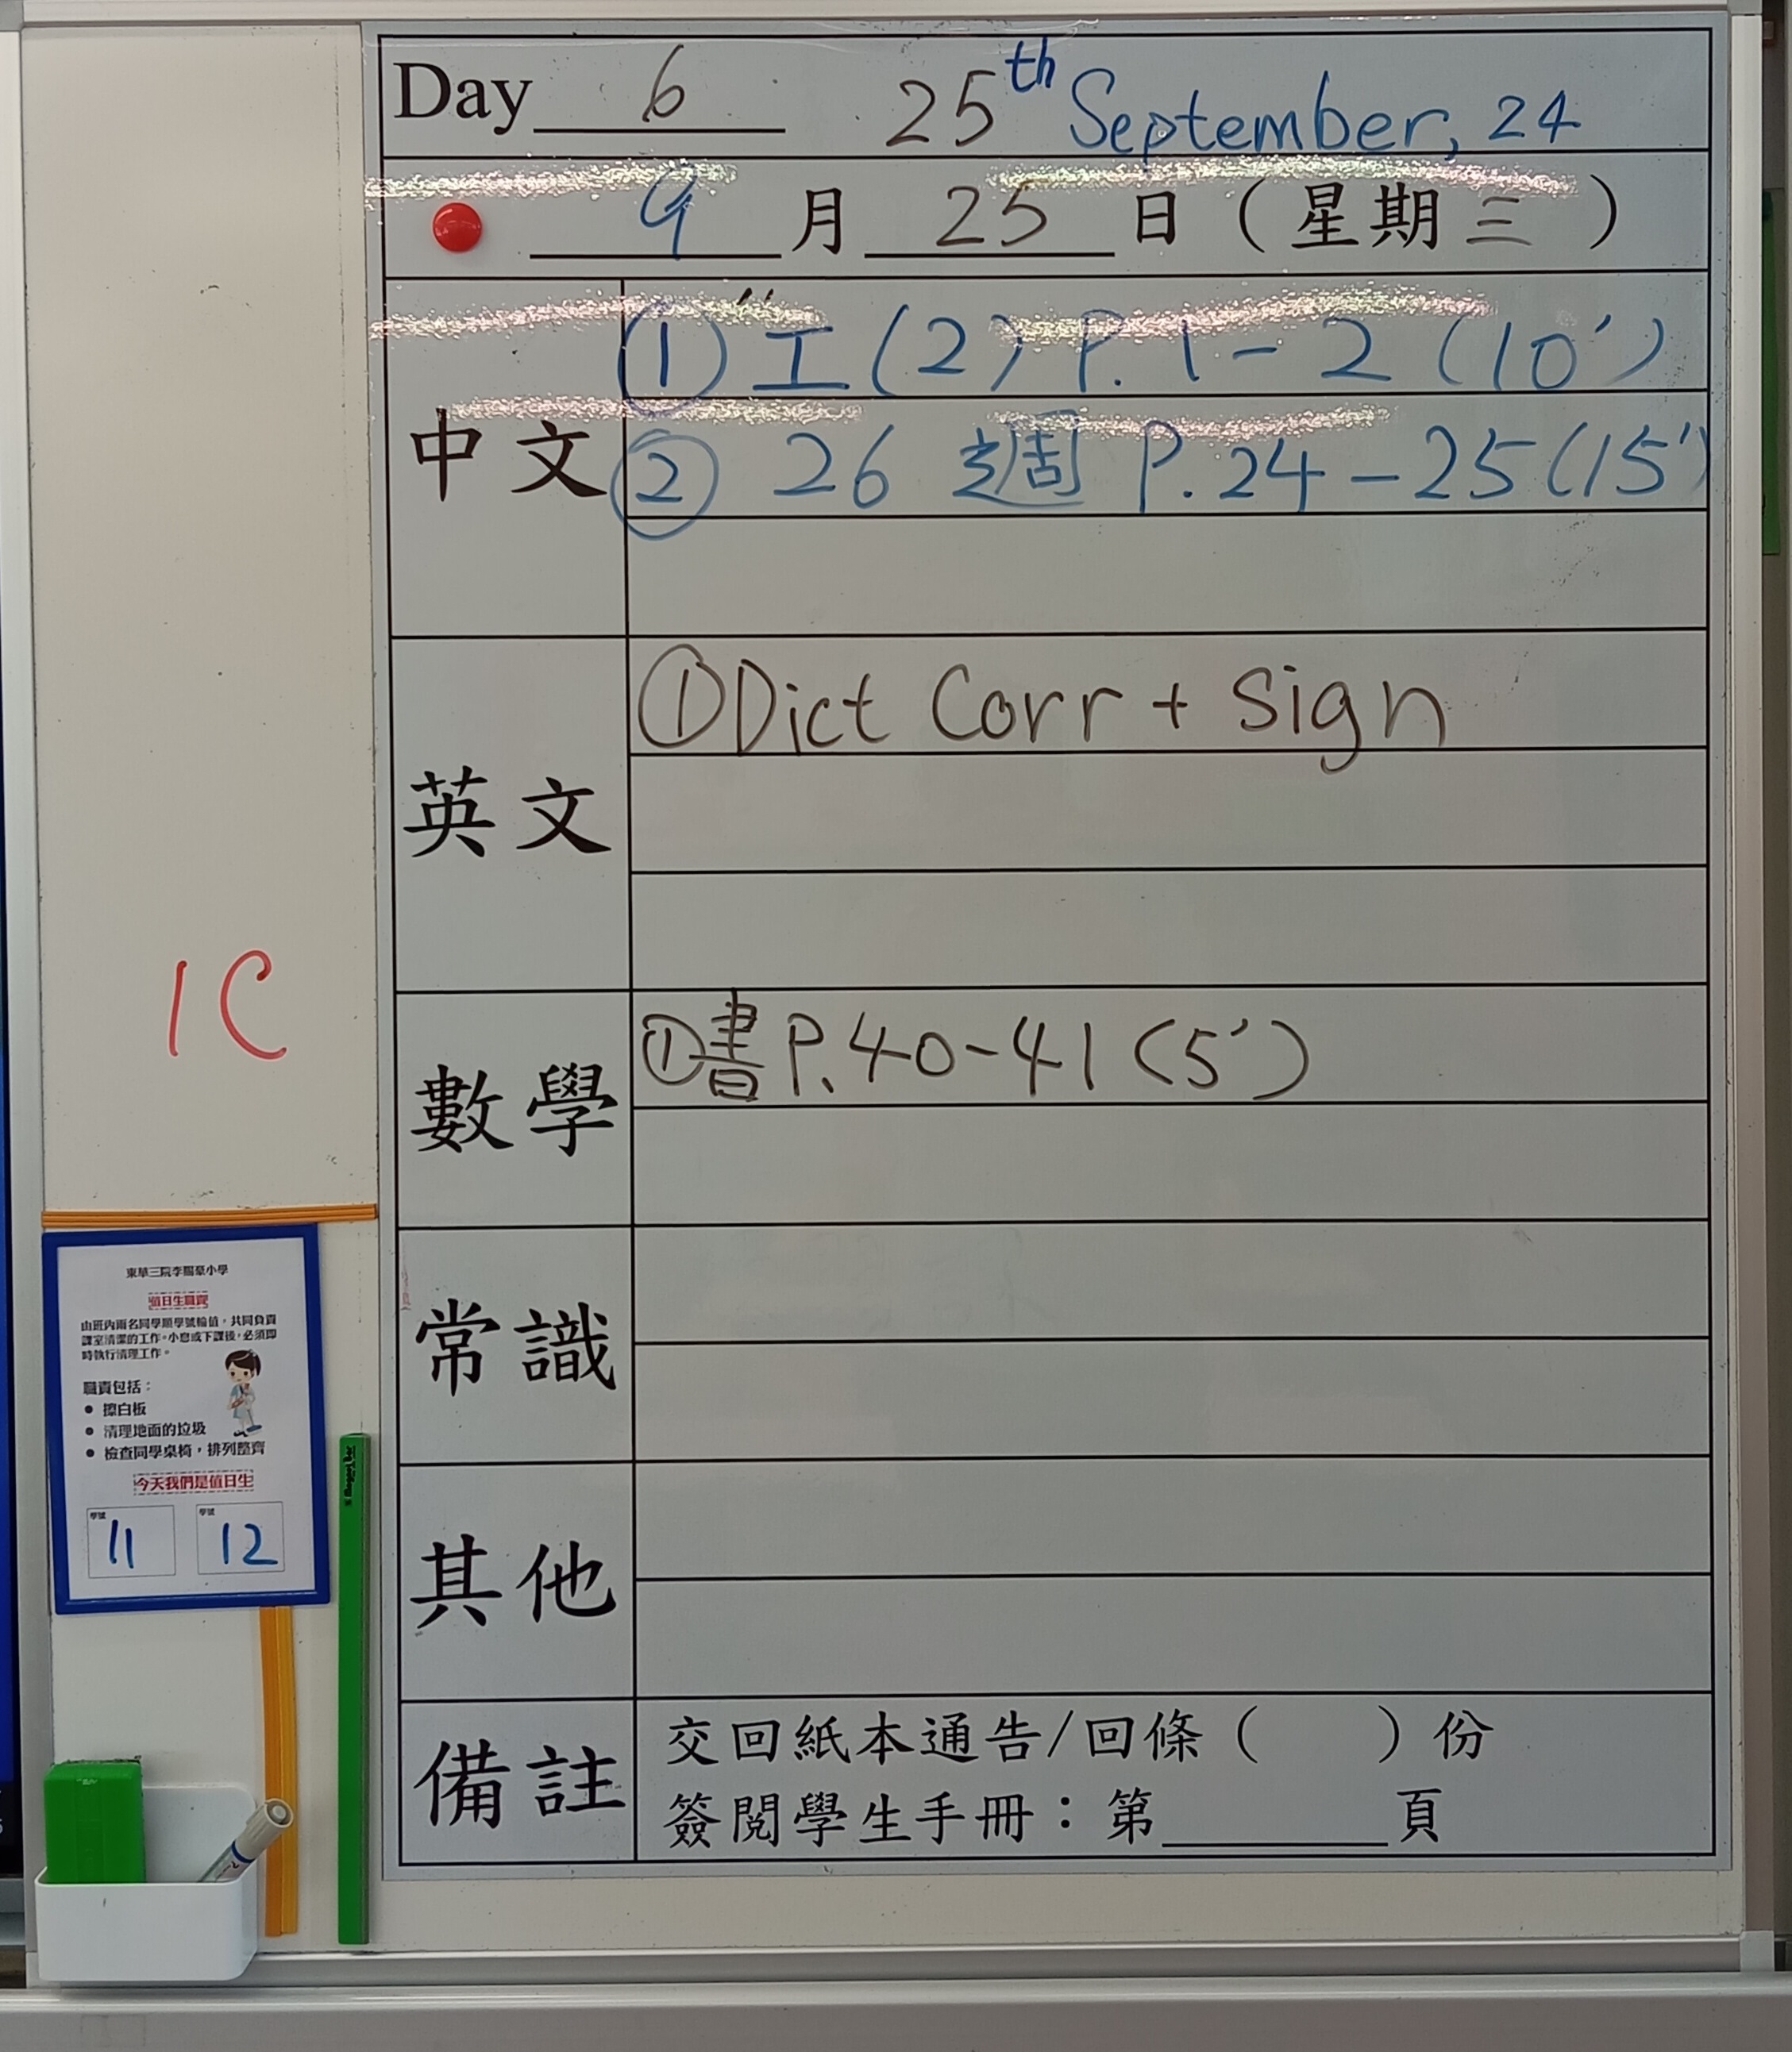 Day 6 25th September, 24
9 月 25 日 (星期三)
中文
① 工(2) P.1-2 (10')
② 26 週 P.24-25 (15')
英文
① Dict Corr + Sign
數學
① 書 P.40-41 (5')
常識
其他
備註
交回紙本通告/回條 ( ) 份
簽閱學生手冊：第______頁
1C
東華三院李賜豪小學
值日生職責
由班內兩名同學順學號輪值，共同負責
課室清潔的工作。小息或下課後，必須即
時執行清理工作。
職責包括：
● 擦白板
● 清理地面的垃圾
● 檢查同學桌椅，排列整齊
今天我們是值日生
學號 11 學號 12